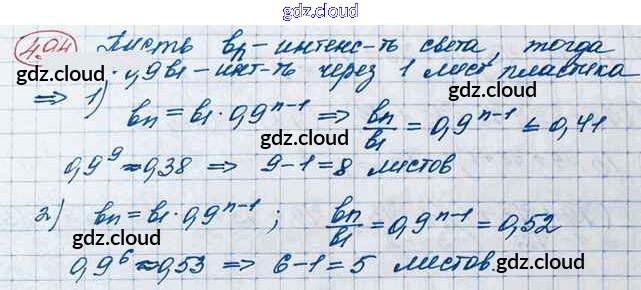 gdz.cloud
4.94 Пусть b₁ - интенс-ть света, тогда
gdz.cloud · 0,9b₁ - инт-ть через 1 лист пластика
⇒ 1) gdz.cloud
bₙ = b₁ · 0,9ⁿ⁻¹ ⇒ bₙ/b₁ = 0,9ⁿ⁻¹ ≤ 0,41
gdz.cloud gdz.cloud
0,9⁹ ≈ 0,38 ⇒ 9-1=8 листов
gdz.cloud
2) bₙ = b₁ · 0,9ⁿ⁻¹ ; bₙ/b₁ = 0,9ⁿ⁻¹ = 0,52
gdz.cloud gdz.cloud
0,9⁶ ≈ 0,53 ⇒ 6-1=5 листов.
gdz.cloud gdz.cloud